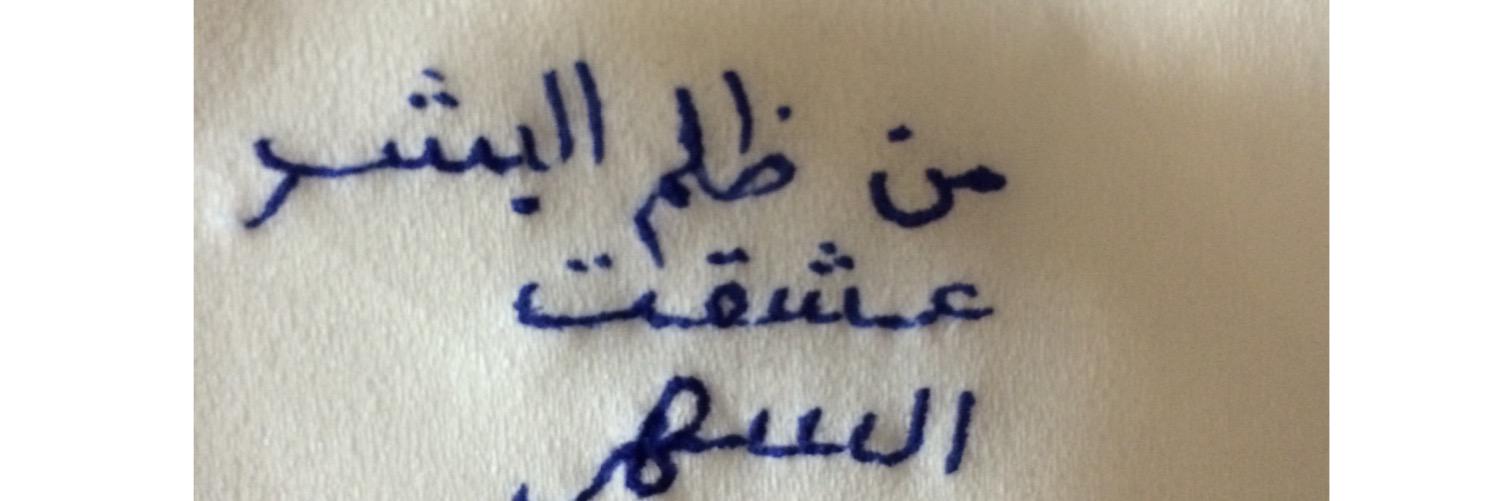 من ظلم البشر
عشقت
السهر